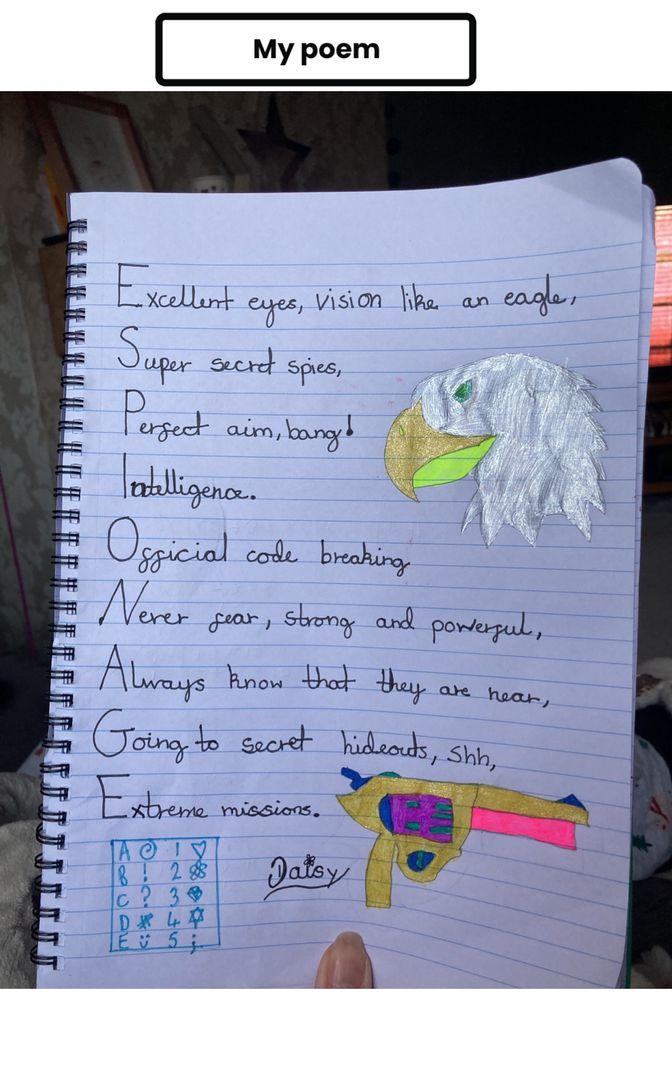 My poem
Excellent eyes, vision like an eagle,
Super secret spies,
Perfect aim, bang!
Intelligence.
Official code breaking
Never fear, strong and powerful,
Always know that they are near,
Going to secret hideouts, shh,
Extreme missions.
Daisy
A 1
B ! 2
C ? 3
D 4
E 5 ;